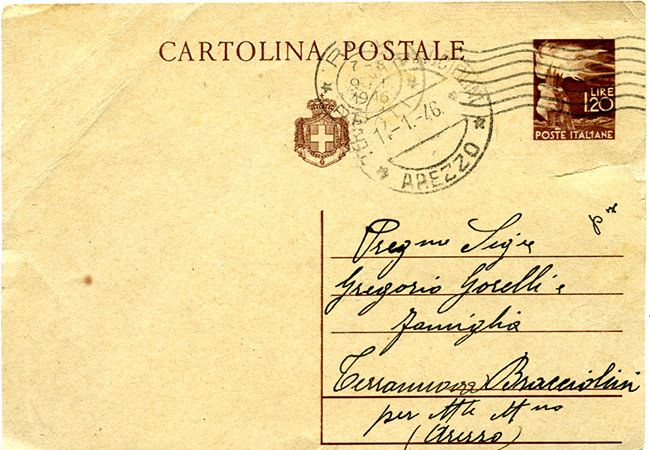 CARTOLINA POSTALE
LIRE
1,20
POSTE ITALIANE
7-8
1946
1-46
AREZZO
Pregmo Sigre
Gregorio Gorelli e
famiglia
Terranuova Bracciolini
per Mte M no
(Arezzo)